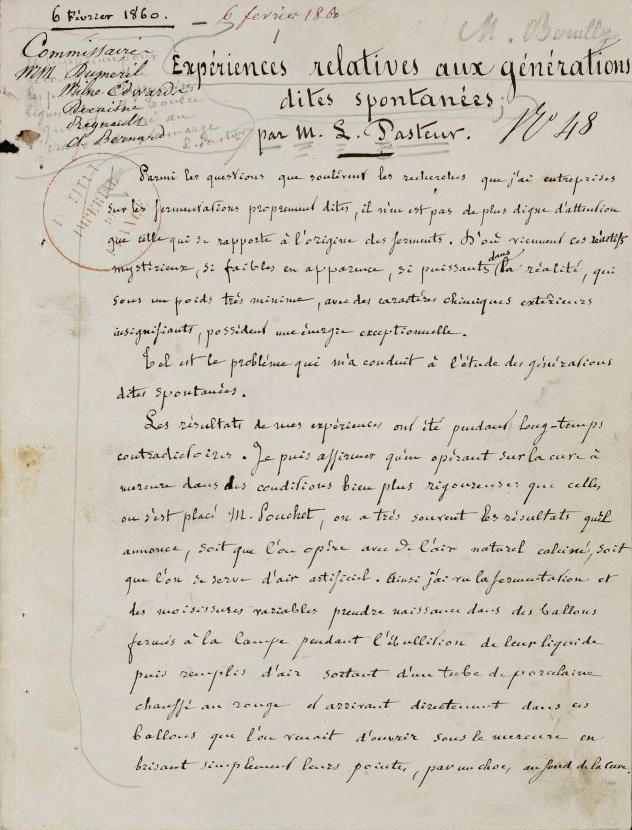 6 Février 1860. — 6 fevrier 1860
M. Bouilly
Commissaires
MM. Dumeril
Milne Edwards
Decaisne
Regnault
Cl. Bernard
Expériences relatives aux générations
dites spontanées;
par M. L. Pasteur.
N° 48
INSTITUT IMPÉRIAL
Parmi les questions que soulèvent les recherches que j'ai entreprises
sur les fermentations proprement dites, il n'en est pas de plus digne d'attention
que celle qui se rapporte à l'origine des ferments. D'où viennent ces réactifs
mystérieux, si faibles en apparence, si puissants dans la réalité, qui
sous un poids très minime, avec des caractères chimiques extérieurs
insignifiants, possèdent une énergie exceptionnelle.
Tel est le problème qui m'a conduit à l'étude des générations
dites spontanées.
Les résultats de mes expériences ont été pendant long-temps
contradictoires. Je puis affirmer qu'en opérant sur la cuve à
mercure dans des conditions bien plus rigoureuses que celles
ou s'est placé M. Pouchet, on a très souvent les résultats qu'il
annonce, soit que l'on opère avec de l'air naturel calciné, soit
que l'on se serve d'air artificiel. Ainsi j'ai vu la fermentation et
des moisissures variables prendre naissance dans des ballons
fermés à la lampe pendant l'ébullition de leur liquide
puis remplis d'air sortant d'un tube de porcelaine
chauffé au rouge et arrivant directement dans ces
ballons que l'on venait d'ouvrir sous le mercure en
brisant simplement leurs pointes, par un choc, au fond de la cuve.